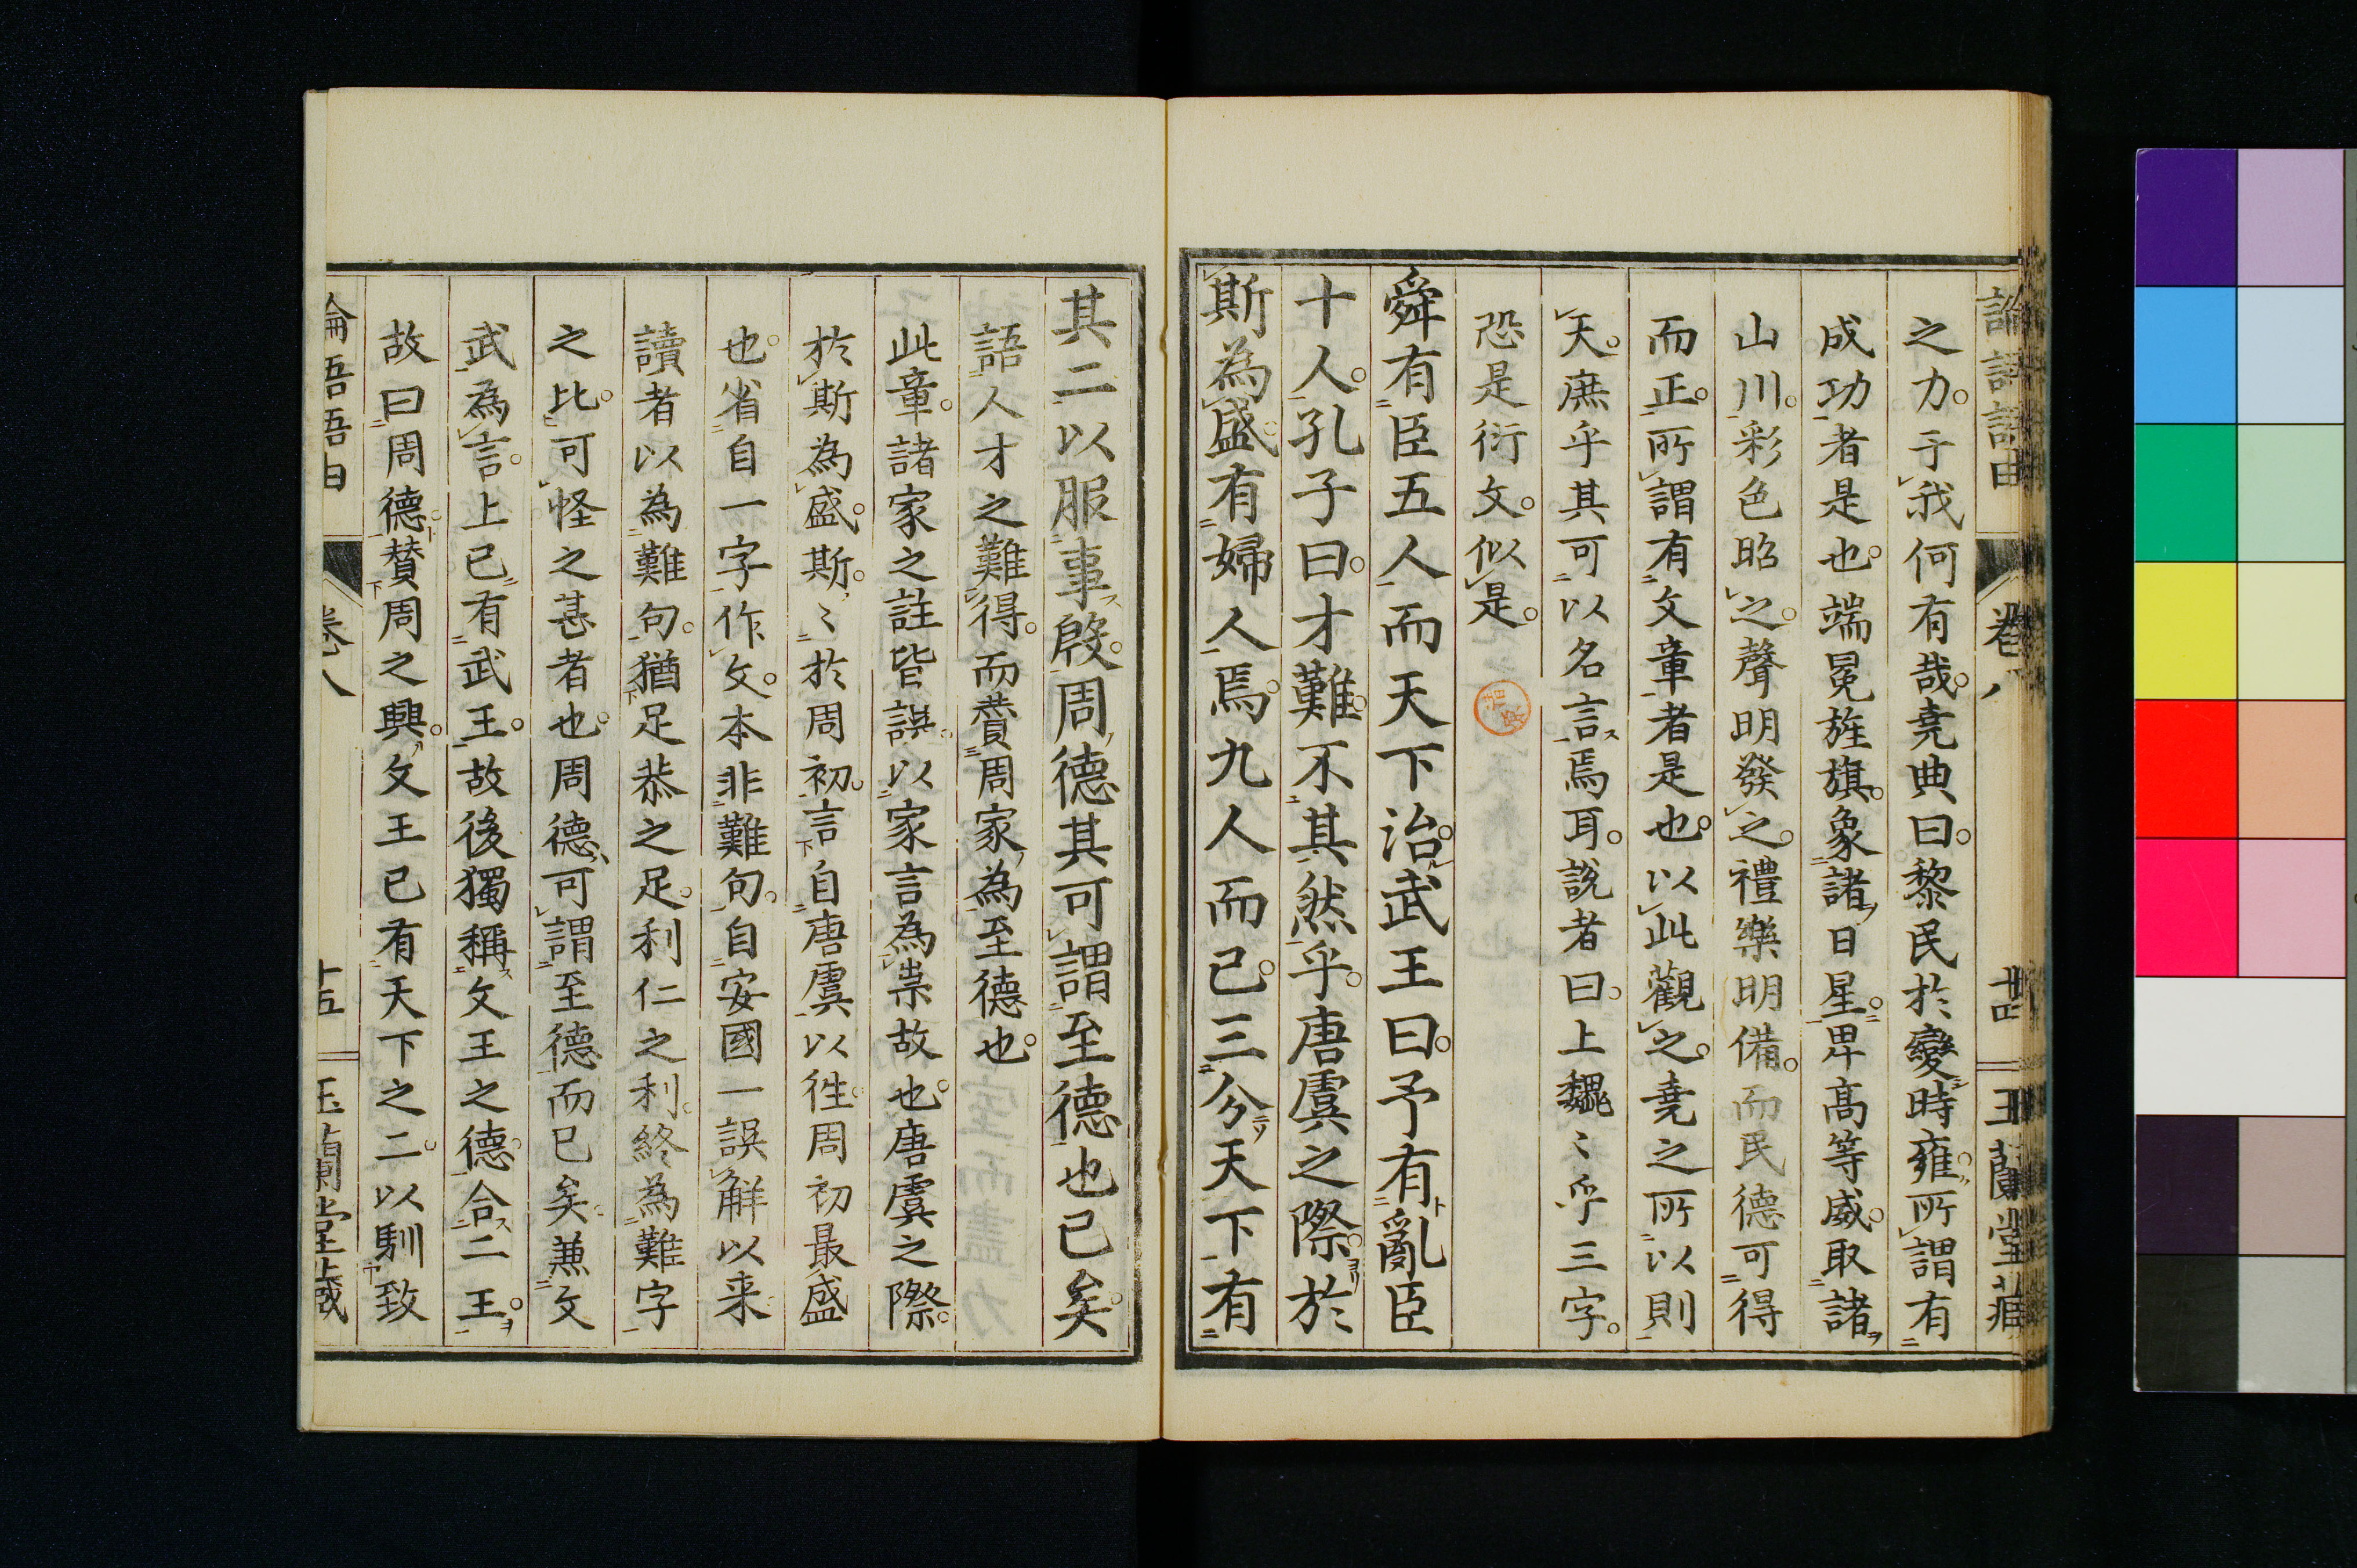 論語語由 卷八 廿四 玉蘭堂藏
之力。于我何有哉。堯典曰。黎民於變時雍。所謂有
成功者是也。端冕旌旗。象諸日星。卑高等威。取諸
山川。彩色昭之。聲明發之。禮樂明備。而民德可得
而正。所謂有文章者是也。以此觀之。堯之所以則
天。庶乎其可以名言焉耳。說者曰。上巍〻乎三字。
恐是衍文。似是。
舜有臣五人而天下治。武王曰。予有亂臣
十人。孔子曰。才難。不其然乎。唐虞之際。於
斯為盛。有婦人焉。九人而已。三分天下有
其二以服事殷。周德其可謂至德也已矣。
語人才之難得。而賛周家為至德也。
此章。諸家之註皆誤。以家言為祟故也。唐虞之際。
於斯為盛。斯。〻於周初。言自唐虞以徃。周初最盛
也。省自一字作文。本非難句。自安國一誤解以来
讀者以為難句。猶足恭之足。利仁之利。終為難字
之比。可怪之甚者也。周德可謂至德而已矣。兼文
武為言。上已有武王。故後獨稱文王之德。合二王。
故曰周德。賛周之興。文王已有天下之二。以馴致
論語語由 卷八 十五 玉蘭堂藏